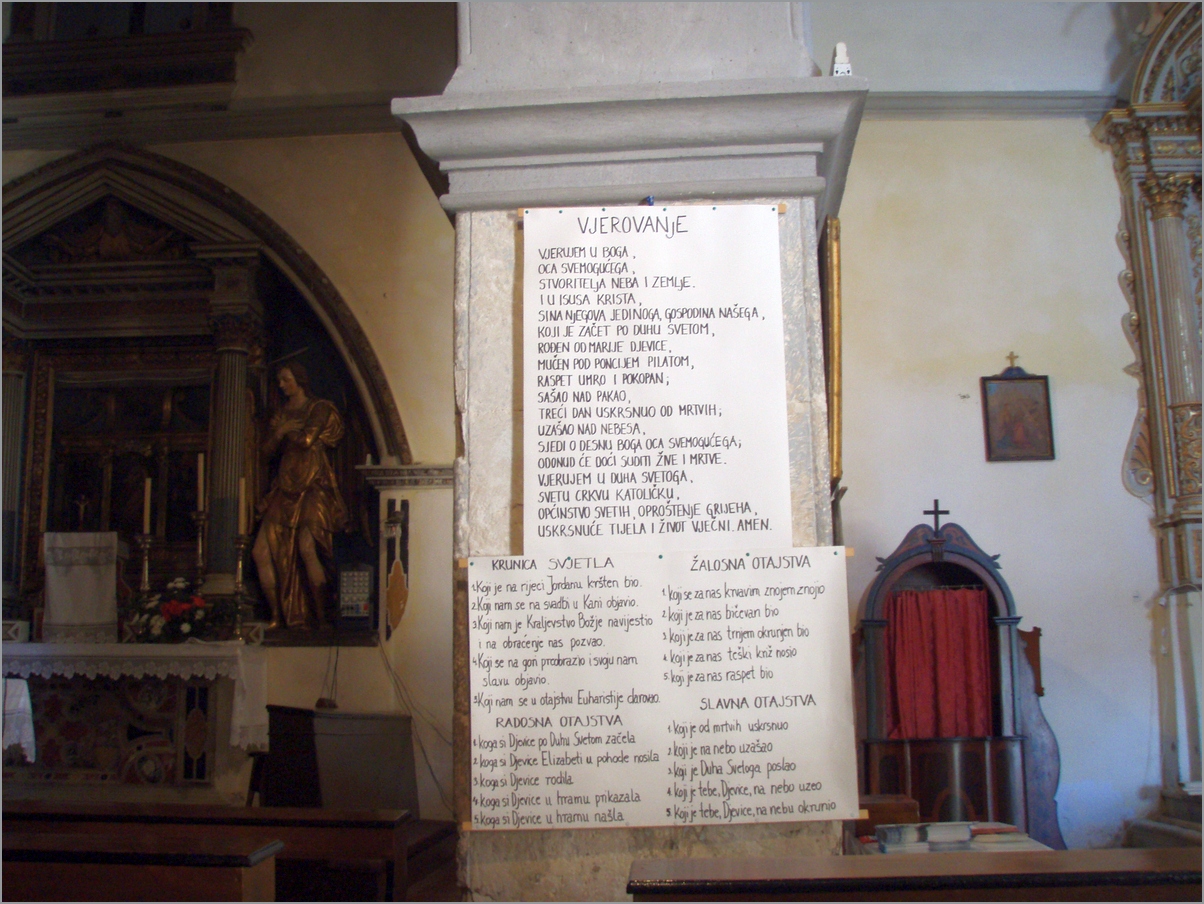 VJEROVANjE
VJERUJEM U BOGA,
OCA SVEMOGUĆEGA,
STVORITELjA NEBA I ZEMLjE.
I U ISUSA KRISTA,
SINA NjEGOVA JEDINOGA, GOSPODINA NAŠEGA,
KOJI JE ZAČET PO DUHU SVETOM,
ROĐEN OD MARIJE DJEVICE,
MUČEN POD PONCIJEM PILATOM,
RASPET UMRO I POKOPAN;
SAŠAO NAD PAKAO,
TREĆI DAN USKRSNUO OD MRTVIH;
UZAŠAO NAD NEBESA,
SJEDI O DESNU BOGA OCA SVEMOGUĆEGA;
ODONUD ĆE DOĆI SUDITI ŽIVE I MRTVE.
VJERUJEM U DUHA SVETOGA,
SVETU CRKVU KATOLIČKU,
OPĆINSTVO SVETIH, OPROŠTENJE GRIJEHA,
USKRSNUĆE TIJELA I ŽIVOT VJEČNI. AMEN.
KRUNICA SVJETLA
1. Koji je na rijeci Jordanu kršten bio.
2. Koji nam se na svadbi u Kani objavio.
3. Koji nam je Kraljevstvo Božje navijestio
i na obraćenje nas pozvao.
4. Koji se na gori preobrazio i svoju nam
slavu objavio.
5. Koji nam se u otajstvu Euharistije darovao.
RADOSNA OTAJSTVA
1. koga si Djevice po Duhu Svetom začela
2. koga si Djevice Elizabeti u pohode nosila
3. koga si Djevice rodila
4. koga si Djevice u hramu prikazala
5. koga si Djevice u hramu našla
ŽALOSNA OTAJSTVA
1. koji se za nas krvavim znojem znojio
2. koji je za nas bičevan bio
3. koji je za nas trnjem okrunjen bio
4. koji je za nas teški križ nosio
5. koji je za nas raspet bio
SLAVNA OTAJSTVA
1. koji je od mrtvih uskrsnuo
2. koji je na nebo uzašao
3. koji je Duha Svetoga poslao
4. koji je tebe, Djevice, na nebo uzeo
5. koji je tebe, Djevice, na nebu okrunio